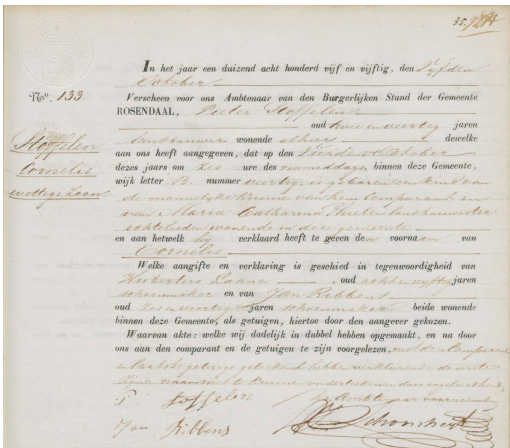 35.
In het jaar een duizend acht honderd vijf en vijftig, den vijfden
October
N°. 133. Verscheen voor ons Ambtenaar van den Burgerlijken Stand der Gemeente
ROSENDAAL, Pieter Stoffelen
oud twee en veertig jaren
Stoffelen landbouwer wonende alhier dewelke
Cornelis aan ons heeft aangegeven, dat op den vierden October
wettige Zoon dezes jaars om zes ure des namiddags, binnen deze Gemeente,
wijk letter B. nummer veertig, is geboren een kind van
de mannelijke kunne van hem Comparant en
van Maria Catharina landbouwster
echtelieden wonende in deze gemeente
en aan hetwelk hij verklaard heeft te geven den voornaam van
Cornelis
Welke aangifte en verklaring is geschied in tegenwoordigheid van
Huibertus Laane oud acht en vijftig jaren
schoenmaker en van Jan Ribbens
oud zes en veertig jaren schoenmaker beide wonende
binnen deze Gemeente, als getuigen, hiertoe door den aangever gekozen.
Waarvan akte: welke wij dadelijk in dubbel hebben opgemaakt, en na door
ons aan den comparant en de getuigen te zijn voorgelezen, met den Comparant
en laatste getuige geteekend hebben verklarende de eerste
getuige naam niet te kunnen onderteekenen
P Stoffelen De Ambtenaar voornoemd
Jan Ribbens